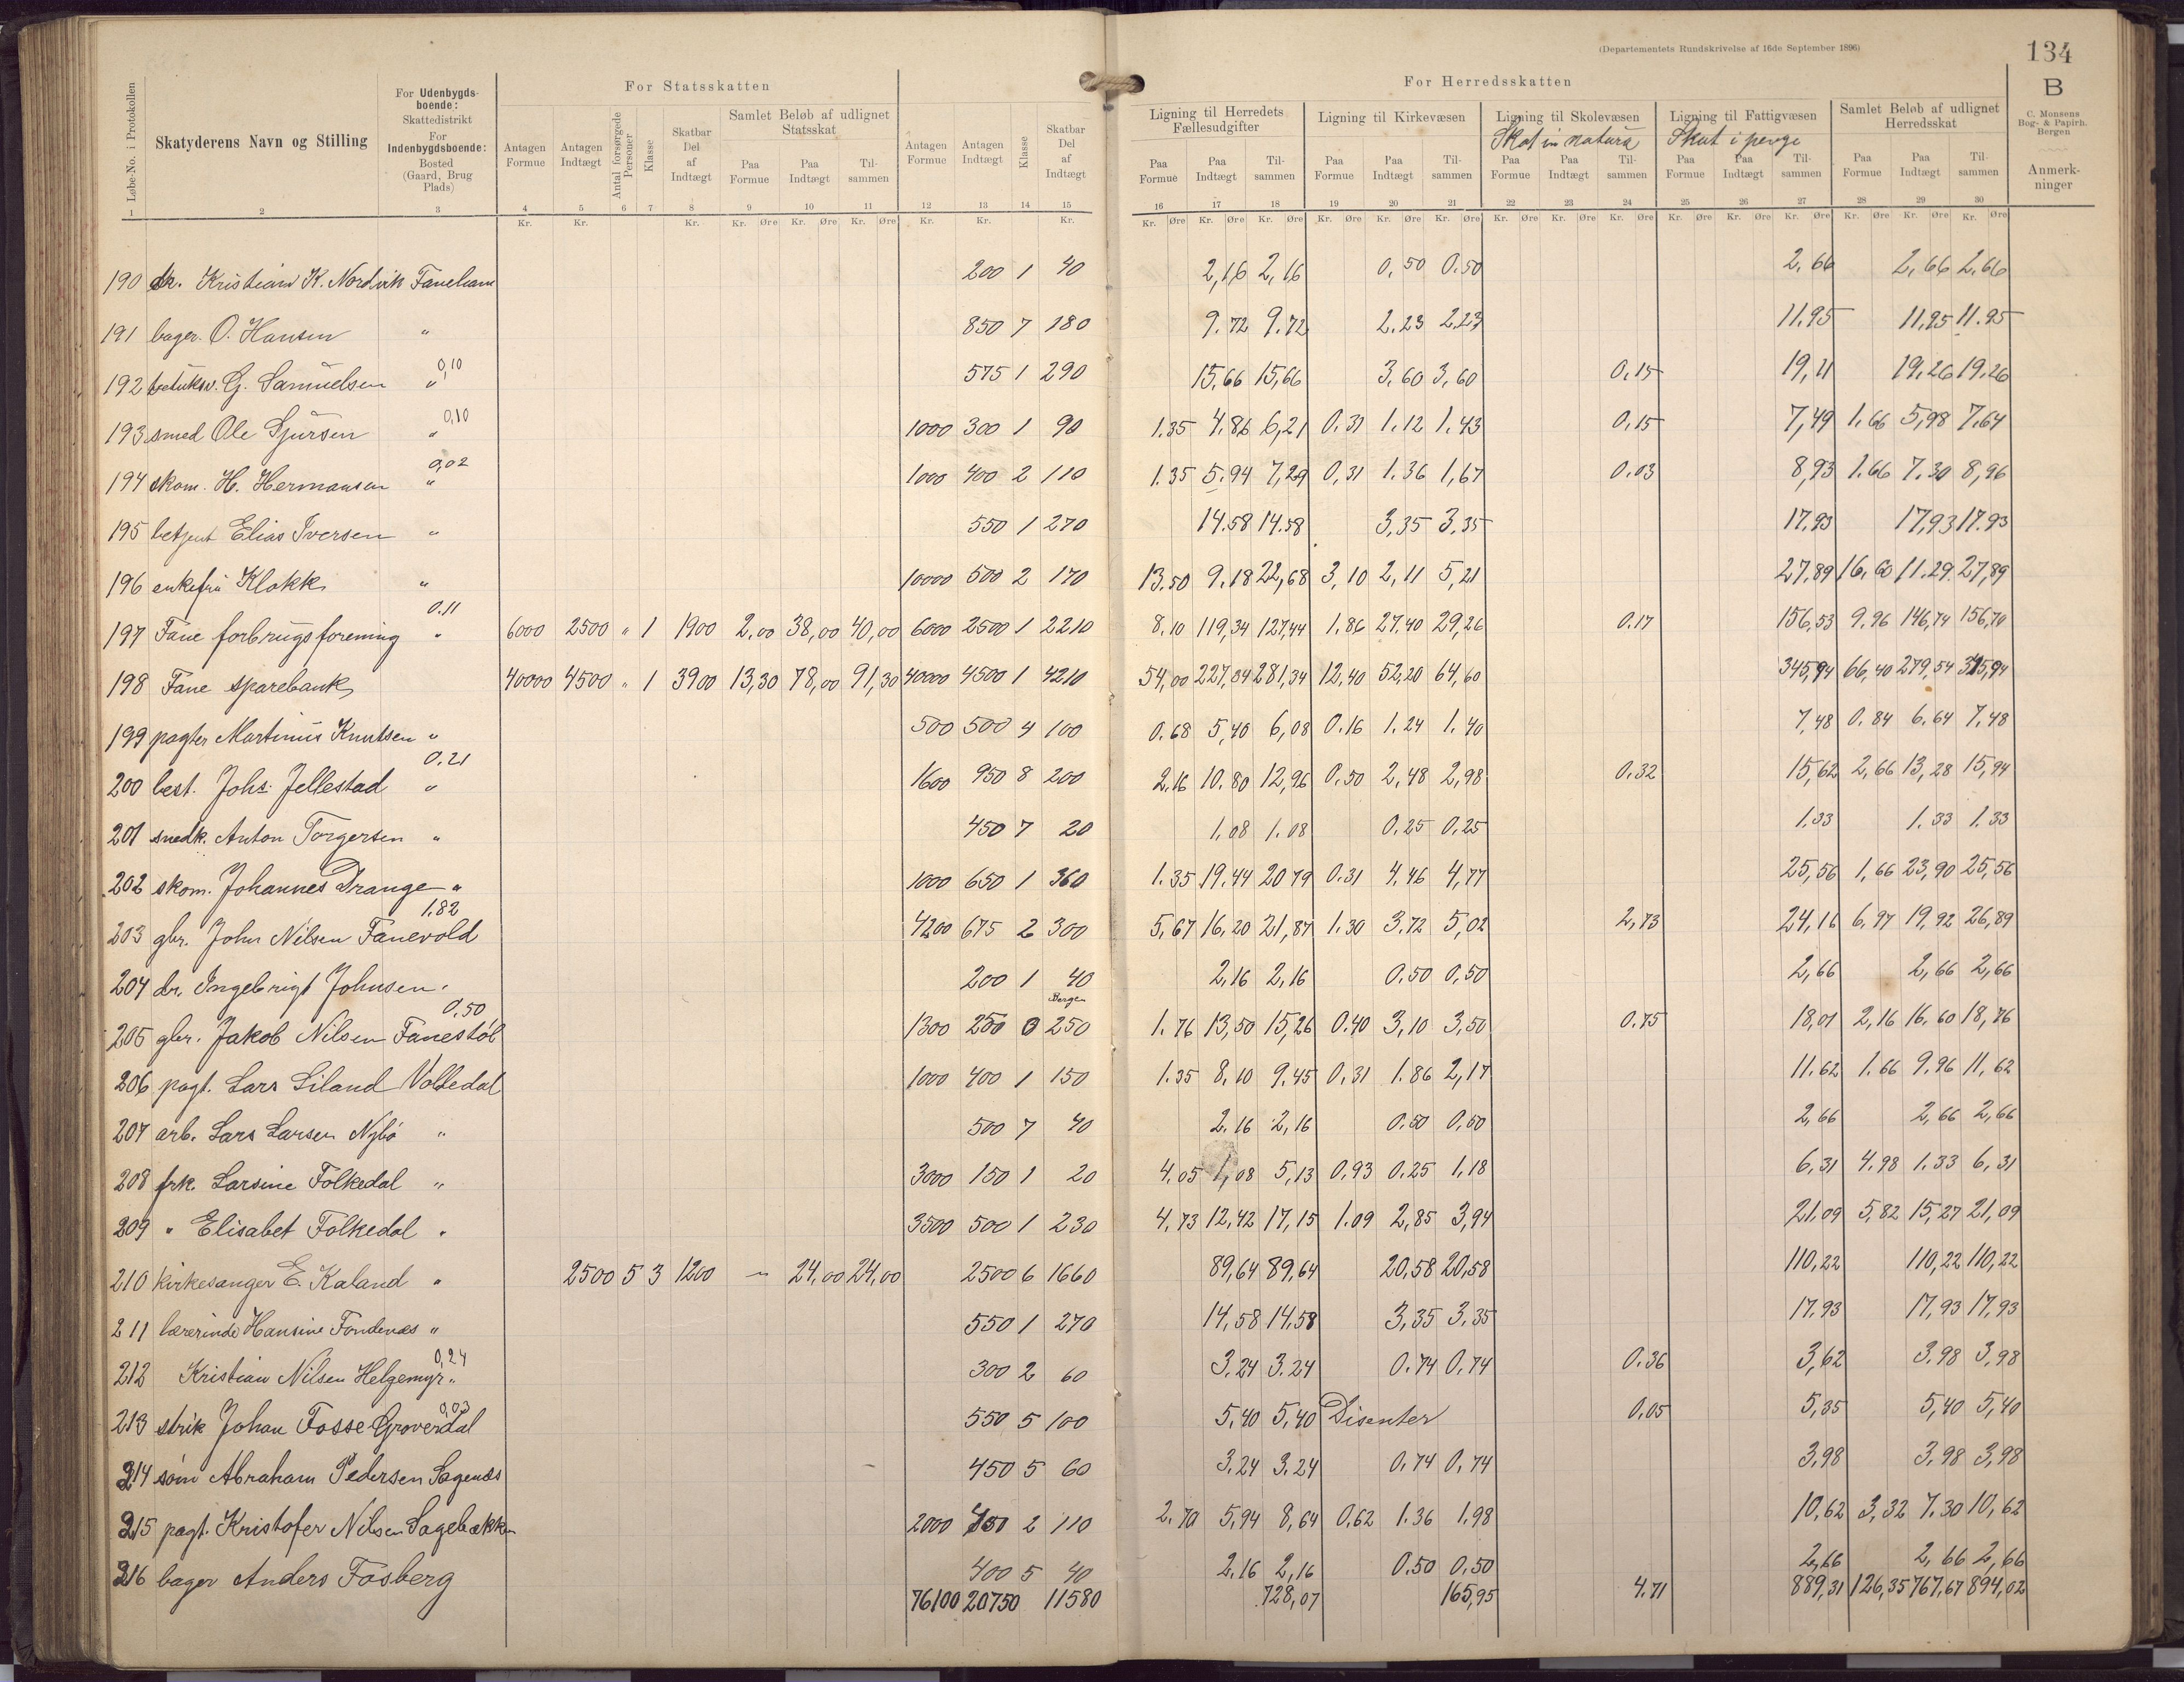 (Departementets Rundskrivelse af 16de September 1896)
134
B
C. Monsens
Bog- & Papirh.
Bergen
For Statsskatten
For Herredsskatten
Løbe-No. i Protokollen
Skatyderens Navn og Stilling
For Udenbygds-
boende:
Skattedistrikt
For
Indenbygdsboende:
Bosted
(Gaard, Brug
Plads)
Antagen Formue
Antagen Indtægt
Antal forsørgede Personer
Klasse
Skatbar Del af Indtægt
Samlet Beløb af udlignet Statsskat
Paa Formue Paa Indtægt Til-sammen
Antagen Formue
Antagen Indtægt
Klasse
Skatbar Del af Indtægt
Ligning til Herredets Fællesudgifter
Paa Formue Paa Indtægt Til-sammen
Ligning til Kirkevæsen
Paa Formue Paa Indtægt Til-sammen
Ligning til Skolevæsen
Skat in natura
Paa Formue Paa Indtægt Til-sammen
Ligning til Fattigvæsen
Skat i penge
Paa Formue Paa Indtægt Til-sammen
Samlet Beløb af udlignet Herredsskat
Paa Formue Paa Indtægt Til-sammen
Anmerk-
ninger
1 2 3 4 5 6 7 8 9 10 11 12 13 14 15 16 17 18 19 20 21 22 23 24 25 26 27 28 29 30
Kr. Kr. Kr. Kr. Øre Kr. Øre Kr. Øre Kr. Kr. Kr. Kr. Øre Kr. Øre Kr. Øre Kr. Øre Kr. Øre Kr. Øre Kr. Øre Kr. Øre Kr. Øre Kr. Øre Kr. Øre Kr. Øre Kr. Øre Kr. Øre Kr. Øre
190 sk. Kristian K. Nordvik Faneham 200 1 40 2,16 2,16 0,50 0.50 2,66 2,66 2,66
191 bager. O. Hansen " 850 7 180 9.72 9.72 2.23 2.23 11.95 11,95 11.95
192 G. Samuelsen " 0,10 575 1 290 15,66 15,66 3,60 3,60 0,15 19,11 19,26 19,26
193 smed Ole Sjursen " 0,10 1000 300 1 90 1.35 4.86 6,21 0.31 1.12 1.43 0,15 7,49 1.66 5,98 7.64
194 skom. H. Hermansen " 0,02 1000 400 2 110 1.35 5.94 7,29 0,31 1.36 1,67 0.03 8,93 1.66 7.30 8,96
195 betjent Elias Iversen " 550 1 270 14.58 14.58 3,35 3,35 17.93 17,93 17.93
196 enkefru Klokk " 10000 500 2 170 13.50 9.18 22,68 3,10 2,11 5,21 27,89 16,60 11.29 27,89
197 Fane forbrugsforening " 0.11 6000 2500 " 1 1900 2,00 38,00 40,00 6000 2500 1 2210 8,10 119,34 127,44 1.86 27.40 29,26 0.17 156,53 9.96 146,74 156,70
198 Fane sparebank 40000 4500 " 1 3900 13,30 78,00 91,30 40000 4500 1 4210 54,00 227,34 281,34 12,40 52,20 64,60 345,94 66,40 279,54 345,94
199 pagter Martinus Knutsen " 500 500 4 100 0.68 5,40 6,08 0.16 1.24 1.40 7,48 0.84 6.64 7.48
200 best. Johs. Jellestad " 0.21 1600 950 8 200 2.16 10.80 12,96 0,50 2,48 2,98 0.32 15,62 2,66 13,28 15,94
201 snedk. Anton Torgersen " 450 7 20 1,08 1.08 0.25 0,25 1.33 1.33 1.33
202 skom. Johannes Drange " 1000 650 1 360 1.35 19.44 20 79 0.31 4,46 4,77 25,56 1,66 23,90 25,56
203 gbr. John Nilsen Fanevold 1,82 4200 675 2 300 5,67 16,20 21,87 1.30 3.72 5,02 2,73 24,16 6,97 19,92 26,89
204 dr. Ingebrigt Johnsen " 200 1 40 2,16 2,16 0,50 0,50 2,66 2,66 2,66
Bergen
205 gbr. Jakob Nilsen Fanestøl 0,50 1300 250 0 250 1.76 13,50 15,26 0.40 3,10 3,50 0.75 18,01 2,16 16.60 18,76
206 pagt. Lars Liland Voldedal 1000 400 1 150 1.35 8,10 9.45 0,31 1.86 2,17 11.62 1.66 9.96 11,62
207 arb. Lars Larsen Nybø " 500 7 40 2.16 2,16 0.50 0,50 2,66 2,66 2,66
208 frk. Larsine Folkedal " 3000 150 1 20 4,05 1,08 5,13 0,93 0.25 1,18 6,31 4,98 1.33 6,31
209 " Elisabet Folkedal " 3500 500 1 230 4,73 12,42 17,15 1.09 2,85 3,94 21.09 5,82 15,27 21,09
210 kirkesanger E. Kaland " 2500 5 3 1200 " 24,00 24,00 2500 6 1660 89,64 89,64 20,58 20,58 110,22 110,22 110,22
211 lærerinde Hansine Fondenæs " 550 1 270 14,58 14,58 3,35 3.35 17.93 17,93 17,93
212 Kristian Nilsen Helgemyr " 0,24 300 2 60 3.24 3.24 0.74 0,74 0.36 3,62 3.98 3,98
213 strik Johan Fosse Groverdal 0,03 550 5 100 5,40 5,40 Disenter 0,05 5,35 5,40 5,40
214 søm Abraham Pedersen Sagenæs 450 5 60 3.24 3.24 0.74 0,74 3,98 3,98 3,98
215 pagt. Kristofer Nilsen Sagebækken 2000 450 2 110 2.70 5,94 8,64 0,62 1.36 1.98 10,62 3,32 7.30 10,62
216 bager Anders Fosberg 400 5 40 2.16 2,16 0.50 0,50 2,66 2,66 2,66
76100 20750 11580 728,07 165,95 4.71 889,31 126,35 767,67 894,02